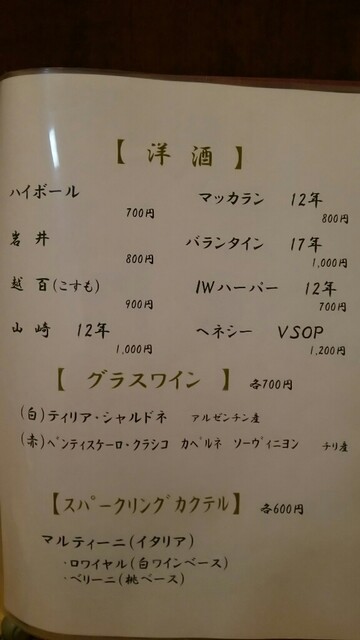 【 洋 酒 】
ハイボール
700円
岩 井
800円
越 百(こすも)
900円
山 崎 12年
1,000円
マッカラン 12年
800円
バランタイン 17年
1,000円
IWハーパー 12年
700円
ヘネシー VSOP
1,200円
【 グラスワイン 】 各700円
(白)ティリア・シャルドネ アルゼンチン産
(赤)ベンティスケーロ・クラシコ カベルネ ソーヴィニヨン チリ産
【スパークリングカクテル】 各600円
マルティーニ(イタリア)
・ロワイヤル(白ワインベース)
・ベリーニ(桃ベース)